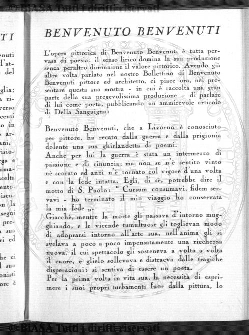 BENVENUTO BENVENUTI
L'opera pittorica di Benvenuto Benvenuti, è tutta per-
vasa di poesia, il senso lirico domina la sua produzione
senza peraltro diminuirne il valore cromico. Avendo già
altra volta parlato nel nostro Bollettino di Benvenuto
Benvenuti pittore ed architetto, ci piace ora, nel pre-
sentare questa sua mostra - in cui è raccolta una gran
parte della sua pregevolissima produzione - di parlare
di lui come poeta, pubblicando un amichevole articolo
di Della Sanguigna.
Benvenuto Benvenuti, che a Livorno è conosciuto
per pittore, ha recato dalla guerra e dalla prigionia
dolente una sua ghirlandetta di poemi.
Anche per lui la guerra è stata un intermezzo di
passione e di rinuncia; ma non se n'è sentito vinto
nè scorato ed anzi n'è tornato col vigore d'una volta
e con la fede intatta. Egli, di sè, potrebbe dire il
di S. Paolo: " Cursum consumavi, fidem ser-
vavi - ho terminato il mio viaggio ho conservata
la mia fede „.
Giacchè, mentre la morte gli passava d'intorno mug-
ghiando, e le vicende tumultuose gli toglievan modo
di adoprarsi intorno all'arte sua, nell'anima gli si
svelava a poco a poco impensatamente una ricchezza
nuova, il cui spettacolo gli sosteneva a volta a volta
il cuore, e glielo sollevava e distraeva dalle tragiche
disperazioni: si sentiva di essere un poeta.
Per la prima volta in vita sua, la necessità di espri-
mere i suoi propri turbamenti fuor dalla pittura, lo